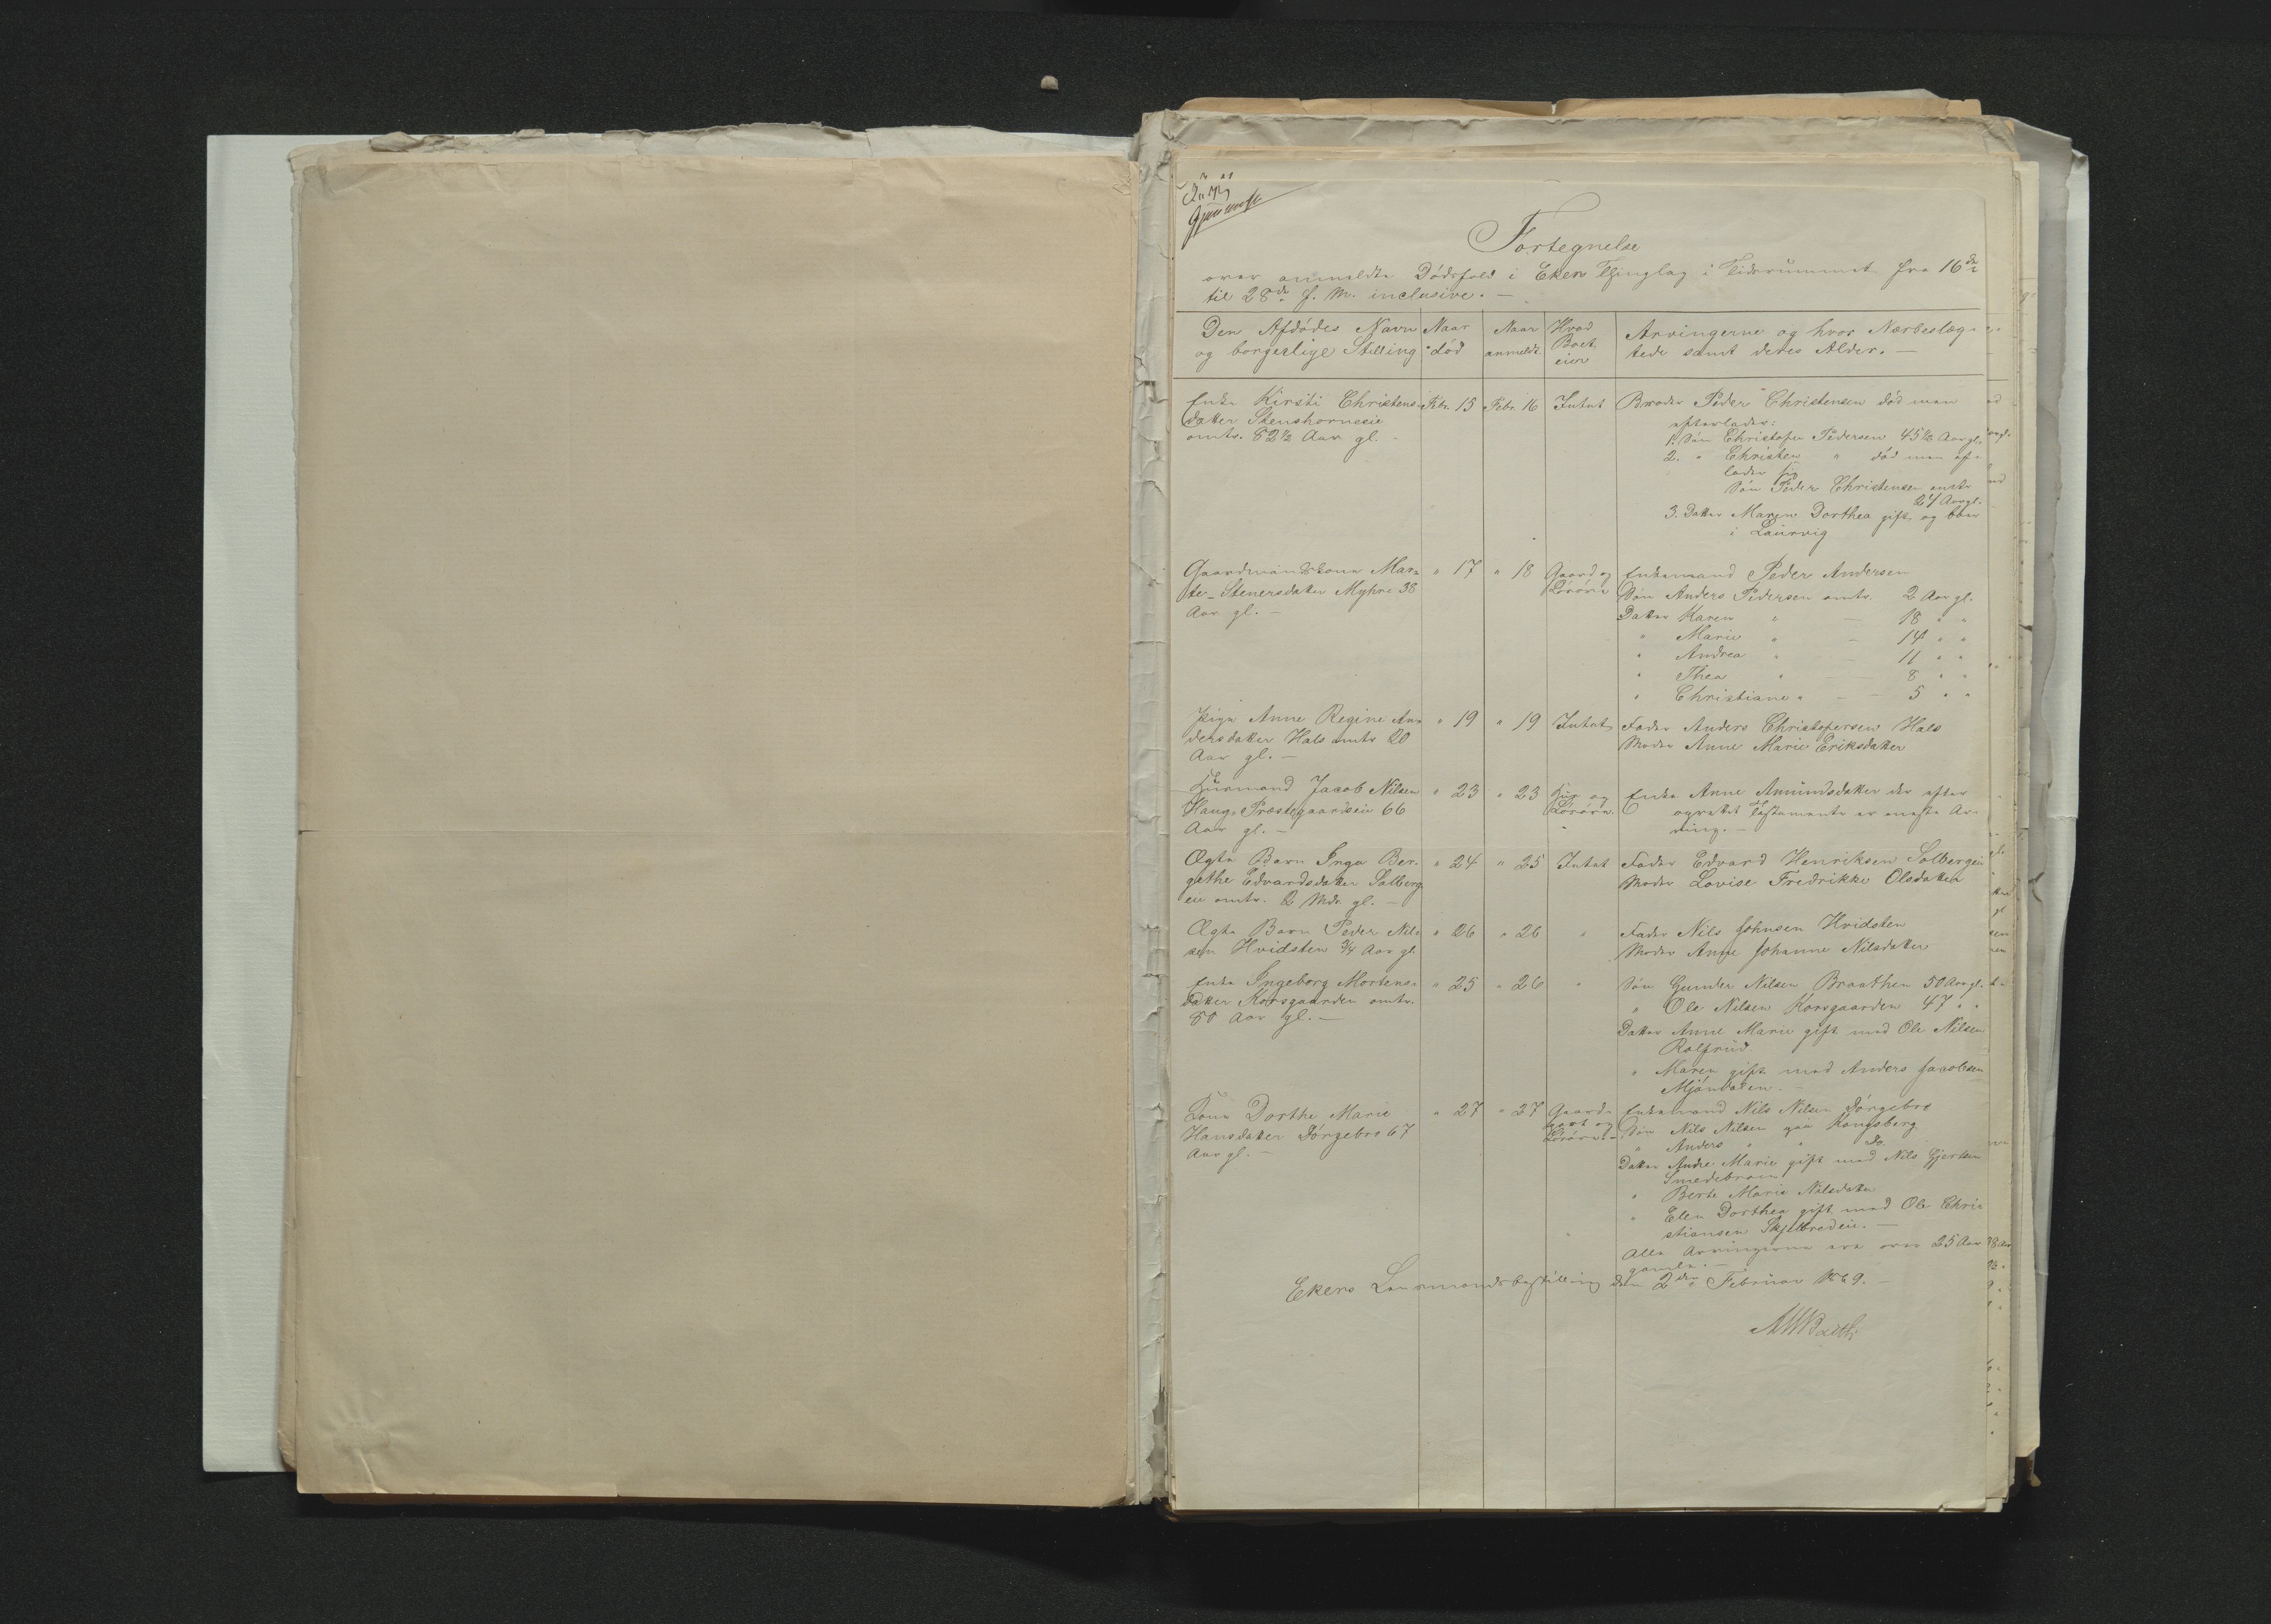 Fortegnelse
over anmeldte Dødsfald i Ekers Thinglag i Tidsrummet fra 16de
til 28de f. M. inclusive. —
Den Afdødes Navn og borgerlige Stilling
Naar død
Naar anmeldt.
Hvad Boet eier
Arvingerne og hvor Nærbeslæg-
tede samt deres Alder. —
Enke Kirsti Christens- Febr. 15 Febr. 16 Intet Broder Peder Christensen død men
datter Stenshorneeie efterlader:
omtr. 82½ Aar gl. 1. Søn Christofer Pedersen 45½ Aar gl.
2. " Christen " død men ef-
lader sig
Søn Peder Christensen omtr
24 Aar gl.
3. Datter Maren Dorthea gift og boer
i Laurvig
Gaardmandskone Mar- " 17 " 18 Gaard og Enkemand Peder Andersen
te Stenersdatter Myhre 38 Løsøre Søn Anders Pedersen omtr. 2 Aar gl.
Aar gl. — Datter Karen " — 18 " "
" Marie " — 14 " "
" Andrea " — 11 " "
" Thea " — 8 " "
" Christiane " — 5 " "
Pige Anne Regine An- " 19 " 19 Intet Fader Anders Christofersen Hals
dersdatter Hals omtr 20 Moder Anne Marie Eriksdatter
Aar gl. —
Huusmand Jacob Nilsen " 23 " 23 Huus og Enke Anne Amundsdatter der efter
Haug-Præstegaardseie 66 Løsøre. oprettet Testamente er eneste Ar-
Aar gl. — ving. —
Ægte Barn Inga Ber- " 24 " 25 Intet Fader Edvard Henriksen Solbergeie
gethe Edvardsdatter Solberg- Moder Lovise Fredrikke Olsdatter
eie omtr. 2 Mdr. gl. —
Ægte Barn Peder Nil- " 26 " 26 " Fader Nils Johnsen Hvidsten
sen Hvidsten ¾ Aar gl. Moder Anne Johanne Nilsdatter
Enke Ingeborg Mortens- " 25 " 26 " Søn Gunder Nilsen Braathen 50 Aar gl.
datter Korsgaarden omtr. " Ole Nilsen Korsgaarden 47 " "
80 Aar gl. — Datter Anne Marie gift med Ole Nilsen
Rolfrud.
" Maren gift med Anders Jacobsen
Mjøndalen. —
Kone Dorthe Marie " 27 " 27 Gaard- Enkemand Nils Nilsen Dørgebro
Hansdatter Dørgebro 67 part og Søn Nils Nilsen paa Kongsberg
Aar gl. — Løsøre — " Anders " " do.
Datter Andre Marie gift med Nils Gjertsen
" Berte Marie Nilsdatter
" Elen Dorthea gift med Ole Chri-
stiansen Skjelbredeie. —
Alle Arvingerne ere over 25 Aar
gamle. —
Ekers Lensmandsbestilling den 2den Februar 1869. —